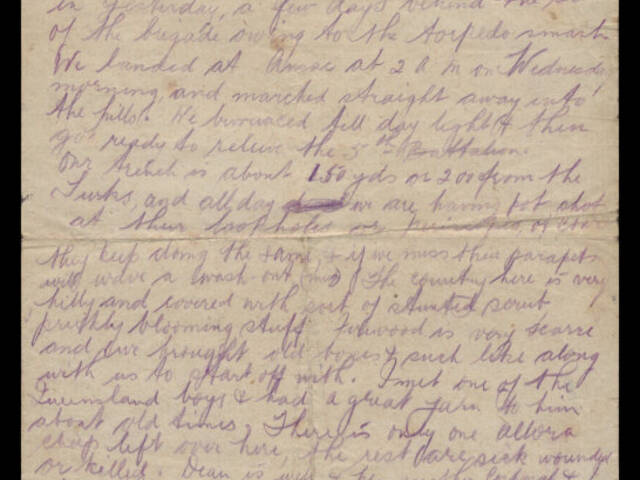 in yesterday, a few days behind the
of the brigade owing to the torpedo smash
We landed at Anzac at 2 A M on Wednesday
morning, and marched straight away into
the hills. We bivuaced till day light & then
got ready to relieve the 5th Battalion.
Our trench is about 150 yds or 200 from the
Turks, and all day we are having pot shot
at their loop holes or periscopes, of course
they keep doing the same, & if we miss their parapets
will wave a wash-out The country here is very
hilly and covered with sort of stunted scrub
prickly blooming stuff. Firewood is very scarce
and we brought old boxes & such like along
with us to start off with. I met one of the
Queensland boys & had a great yarn to him
about old times, There is only one allora
chap left over here, the rest are sick wounded
or killed. Dean is